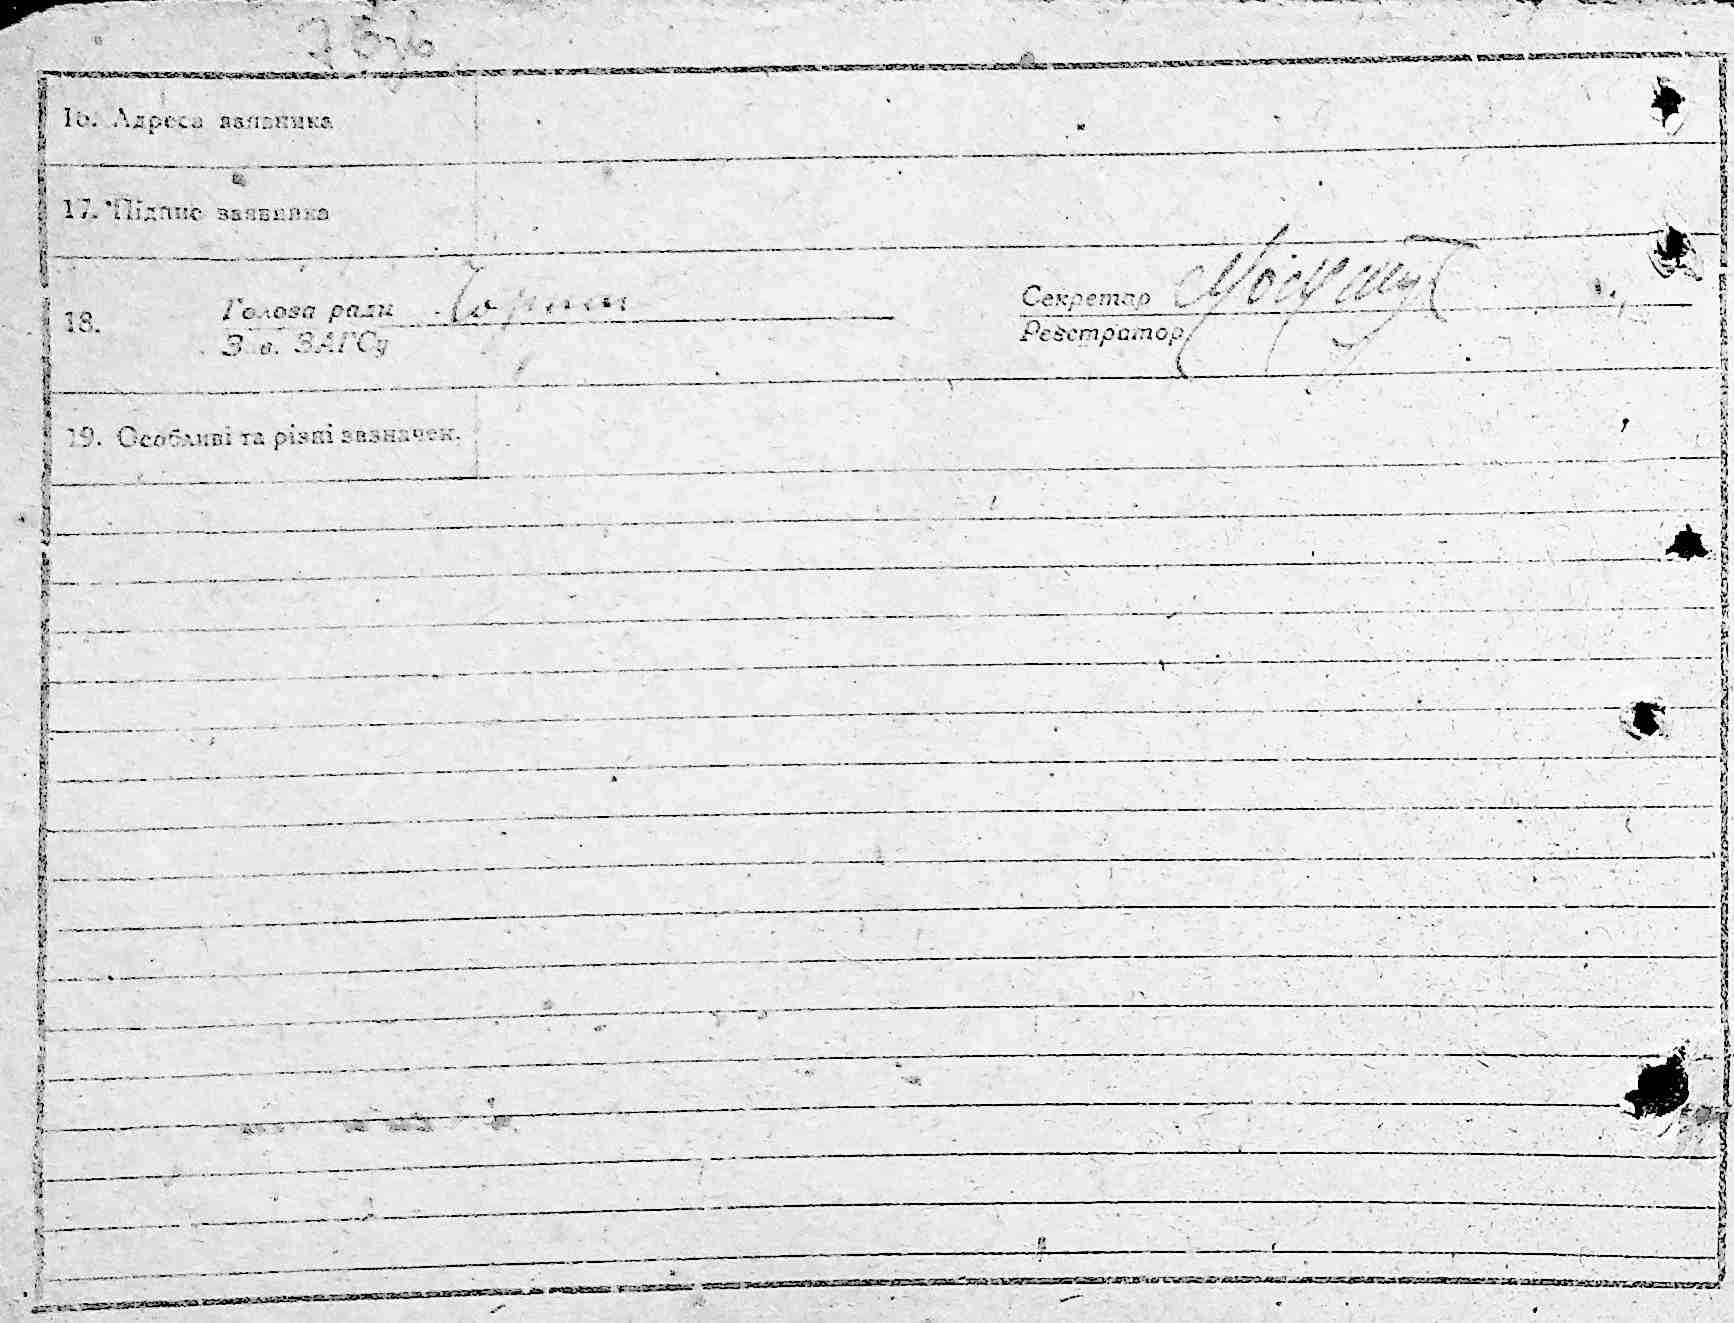 16. Адреса заявника
17. Підпис заявника
18.
Голова ради
Зав. ЗАГСу
Секретар
Реєстратор
19. Особливі та різні зазначек.